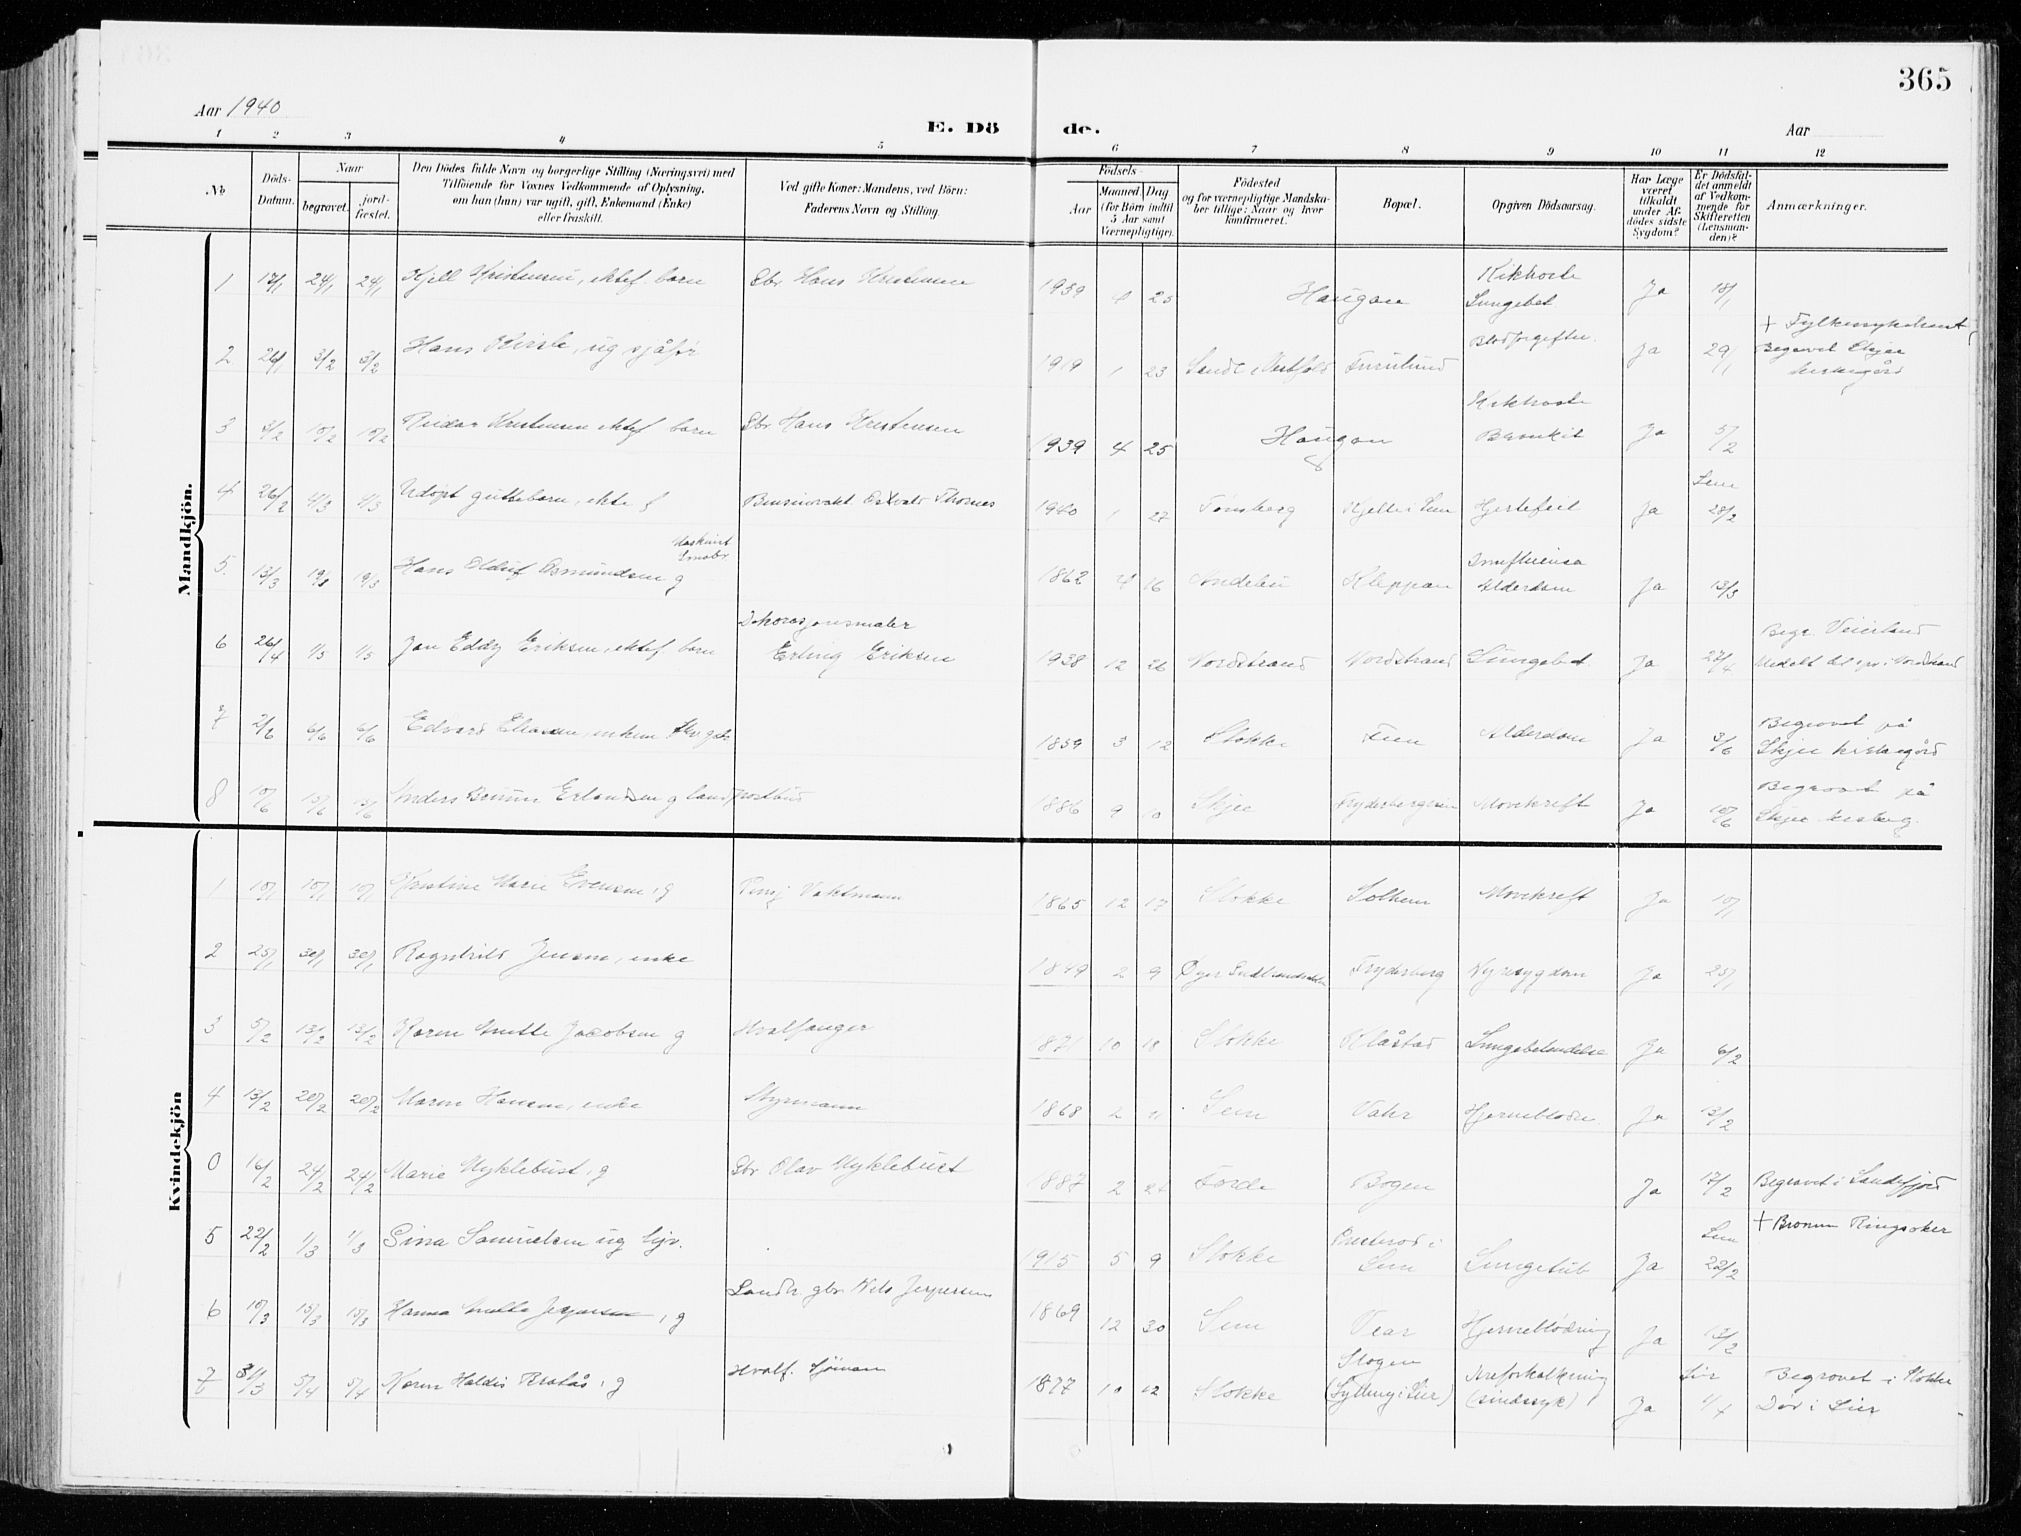 365
Aar 1940
E. Dö de.
Aar
1 2 3 4 5 6 7 8 9 10 11 12
No
Döds-Datum.
Naar
begravet.
jord-fæstet.
Den Dödes fulde Navn og borgerlige Stilling (Næringsvei) med
Tilföiende for Voxnes Vedkommende af Oplysning,
om han (hun) var ugift, gift, Enkemand (Enke)
eller fraskilt.
Ved gifte Koner: Mandens, ved Börn:
Faderens Navn og Stilling.
Födsels-
Aar
Maaned
Dag
(for Börn indtil
5 Aar samt
Værnepligtige).
Födested
og for værnepligtige Mandska-
ber tillige: Naar og hvor
konfirmeret.
Bopæl.
Opgiven Dödsaarsag.
Har Læge
været
tilkaldt
under Af-
dödes sidste
Sygdom?
Er Dödsfal-
det anmeldt
af Vedkom-
mende for
Skifteretten
(Lensman-
den)?
Anmærkninger.
Mandkjön.
1 17/1 24/1 24/1 Kjell Kristensen, ektef. barn Gbr Hans Kristensen 1939 4 25 Haugan Kikhoste Lungebet Ja 18/1
2 26/1 3/2 3/2 Hans ug sjåfør 1919 1 23 Sande i Vestfold Furulund Blodforgiftn. Ja 29/1 + Fylkessykehuset Begravet Skjee kirkegård
3 10/2 10/2 Reidar Kristensen ektef barn Gbr Hans Kristensen 1939 4 25 Haugan Kikhoste Bronkit Ja 5/2
4 26/2 4/3 4/3 Udøpt guttebarn, ekte f Bensinvakt Thomas 1940 1 27 Tønsberg Kjelle i Sem Hjertefeil Ja Sem 28/2
5. 13/3 19/3 19/3 Hans Oluf Asmundsen g Maskinist 1862 4 16 Andebu Kleppan Influensa Alderdom Ja 13/3
6 26/4 1/5 1/5 Jan Eddy Eriksen, ektef. barn Dekorasjonsmaler Erling Eriksen 1938 12 26 Nordstrand Nordstrand Lungebet Ja 27/4 Begr. Veierland Meldt til spr i Nordstrand
7 2/6 6/6 6/6 Edvard Eliassen, enkem 1859 3 12 Stokke Feen Alderdom Ja 3/6 Begravet på Skjee kirkegård
8 10/6 15/6 15/6 Anders Bruun Erlandsen g landpostbud 1886 9 10 Skjee Mavekreft Ja 10/6 Begravet på Skjee kirkeg.
Kvindekjön
1 10/1 10/1 10/1 Kristine Marie Evensen, g Pensj Vaktmann 1865 12 17 Stokke Solhem Mavekreft Ja 10/1
2 25/1 30/1 30/1 Ragnhild Jensen, enke 1849 2 9 Øyer Gudbrandsdalen Frydenberg Nyresygdom Ja 25/1
3 5/2 13/2 13/2 Karen Mathilde Jacobsen g Hvalfanger 1871 10 18 Stokke Klåstad Lungebetendelse Ja 6/2
4 13/2 20/2 20/2 Maren Hansen, enke Styrmann 1868 2 11 Sem Vahr Hjerneblødn. Ja 13/2
0 16/2 24/2 24/2 Marie Myklebust, g Gbr Olav Myklebust 1887 2 Førde Bogen Ja 17/2 Begravet i Sandefjord
5 22/2 1/3 1/3 Gina Samuelsen ug hjv. 1915 5 9 Stokke Presterød i Sem Lungetub Ja Sem 22/2 + Bronum Ringsaker
6 10/3 15/3 15/3 Hanna Mathilde Jespersen, g Landh. gbr Nils Jespersen 1869 12 30 Sem Vear Hjerneblødning Ja 12/2
7 31/3 5/4 5/4 Karen Haldis Bratås, g Hvalf. Sjømann 1877 10 12 Stokke Skogen (Sylling i Lier) Åreforkalkning (sindssyk) Ja Lier 1/4 Begravet i Stokke Død i Lier